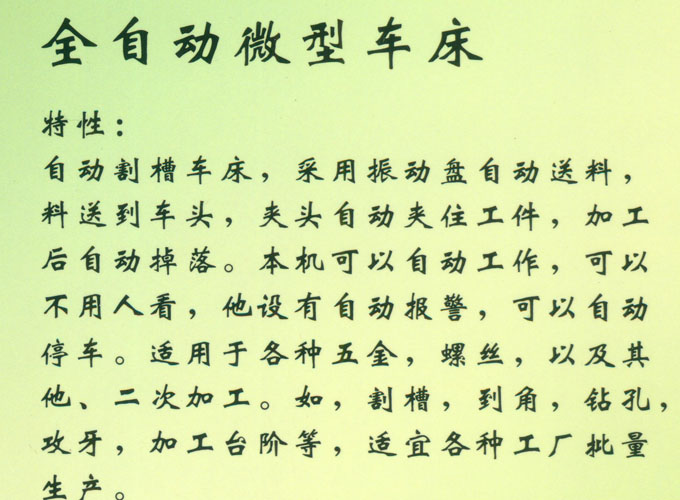 全自动微型车床
特性：
自动割槽车床，采用振动盘自动送料，
料送到车头，夹头自动夹住工件，加工
后自动掉落。本机可以自动工作，可以
不用人看，他设有自动报警，可以自动
停车。适用于各种五金，螺丝，以及其
他、二次加工。如，割槽，到角，钻孔，
攻牙，加工台阶等，适宜各种工厂批量
生产。